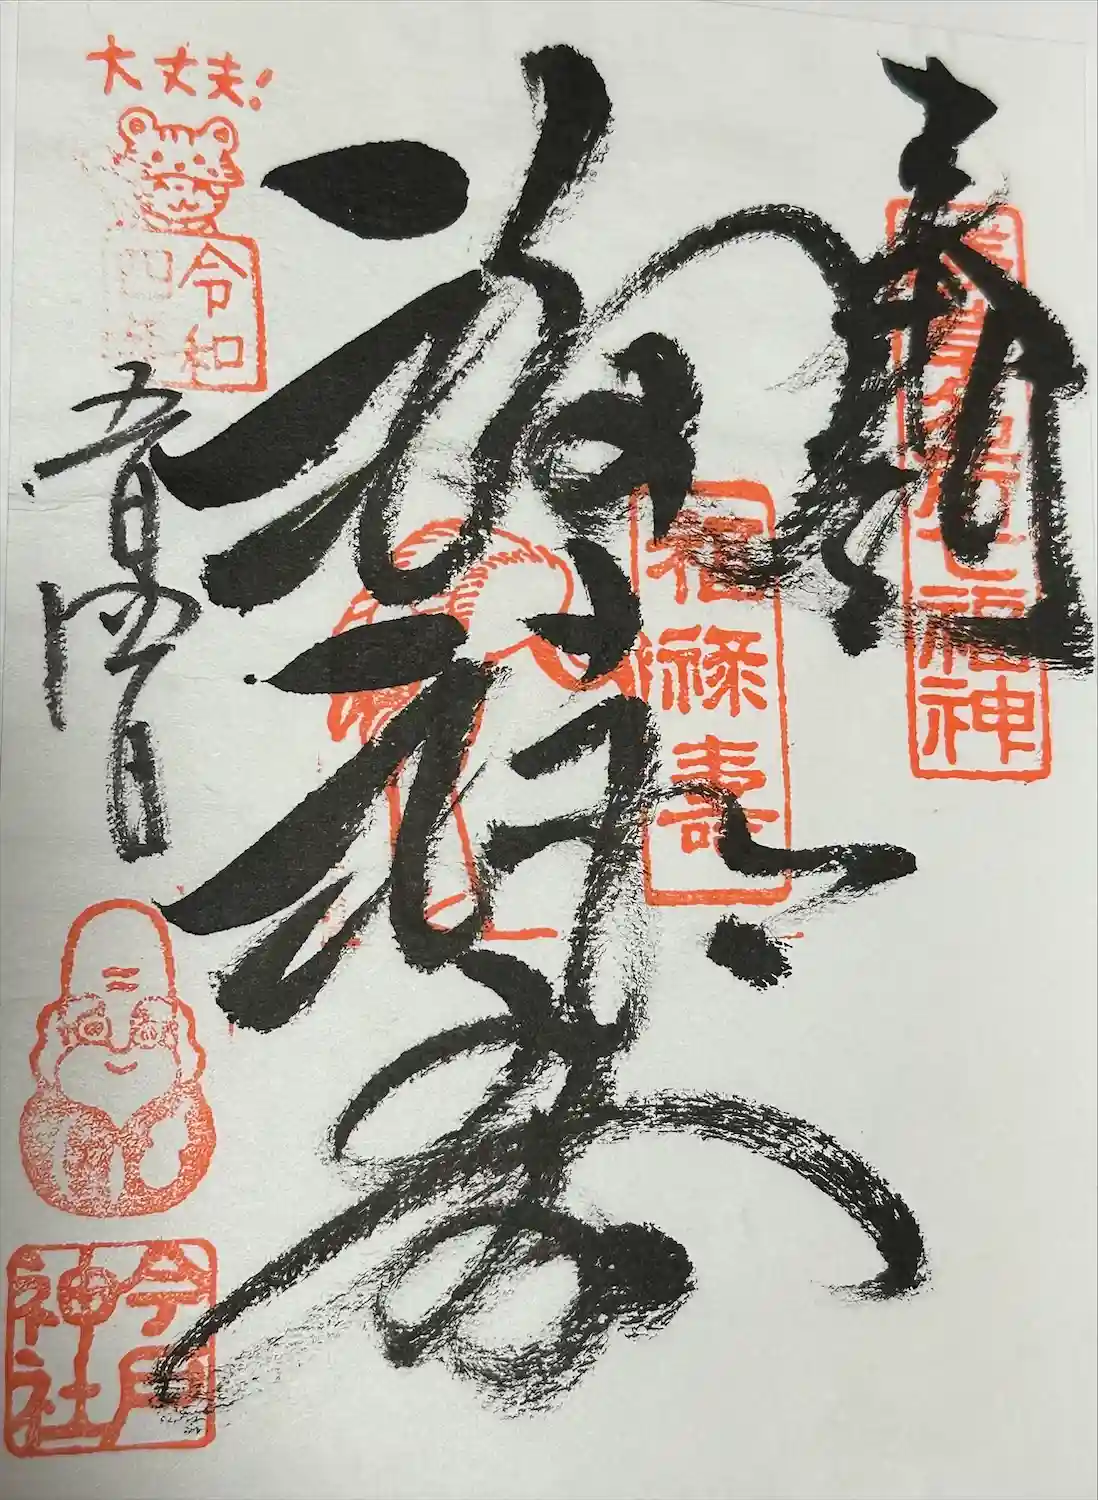 奉拝
浅草名所七福神
福禄寿
福禄寿
大丈夫!
令和
四年
五月四日
今戸
神社